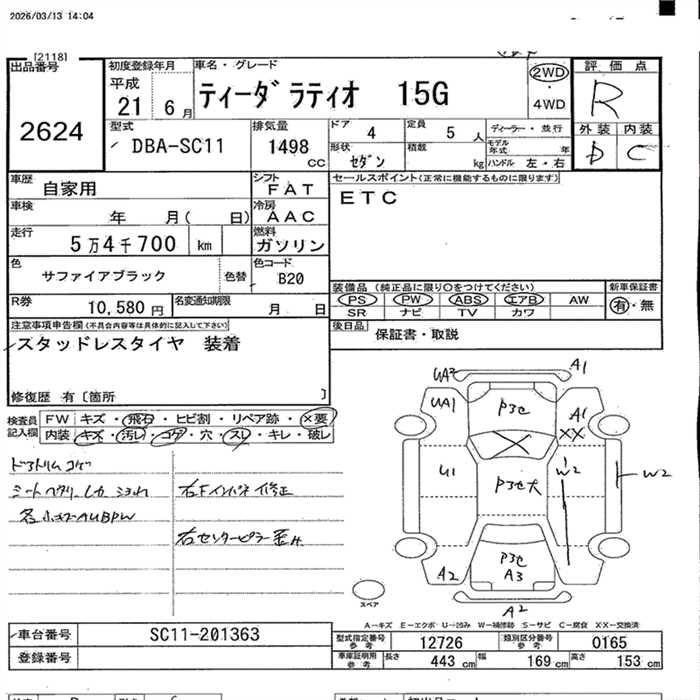 2026/03/13 14:04
[2118]
出品番号
2624
初度登録年月
平成
21 6月
車名・グレード
ティーダ ラティオ 15G
2WD
・
4WD
評価点
R
外装 内装
D C
型式
DBA-SC11
排気量
1498
cc
ドア 4
定員 5 人
ディーラー・並行
モデル年式 年
形状 セダン
積載 kg
ハンドル 左・右
車歴
自家用
シフト
FAT
車検
年 月( 日)
冷房
AAC
走行
5万4千700 km
燃料
ガソリン
色
サファイアブラック
色替
色コード
B20
R券
10,580円
名変通知期限
月 日
セールスポイント(正常に機能するものに限ります)
ETC
装備品 (純正品に限り○をつけてください)
PS PW ABS エアB AW
SR ナビ TV カワ
新車保証書
有・無
後日品
保証書・取説
注意事項申告欄(不具合内容等は具体的に記入して下さい)
スタッドレスタイヤ 装着
修復歴 有〔箇所 〕
検査員
記入欄
FW キズ・飛石・ヒビ割・リペア跡・×要
内装 キズ・汚レ・コゲ・穴・スレ・キレ・破レ
右Fインパネ修正
右センターピラー
UA2
A1
UA1
P3セ
A1
XX
U1
P3セ大
W2
W2
A2
P3セ
A3
A2
スペア
A-キズ E-エクボ U-凹み W-補修跡 S-サビ C-腐食 XX-交換済
車台番号
SC11-201363
登録番号
型式指定番号
参考
12726
類別区分番号
参考
0165
車庫証明用
参考
長さ 443 cm
幅 169 cm
高さ 153 cm